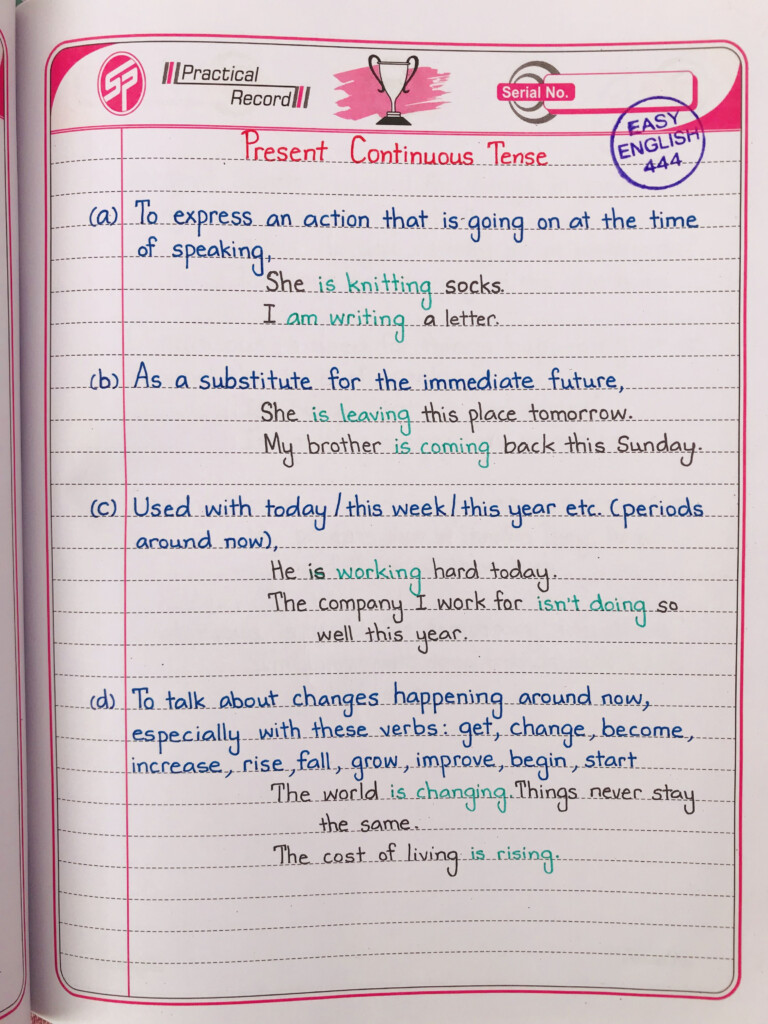 SP
Practical
Record
Serial No.
EASY
ENGLISH
444
Present Continuous Tense
(a) To express an action that is going on at the time
of speaking,
She is knitting socks.
I am writing a letter.
(b) As a substitute for the immediate future,
She is leaving this place tomorrow.
My brother is coming back this Sunday.
(c) Used with today/this week/this year etc. (periods
around now),
He is working hard today.
The company I work for isn't doing so
well this year.
(d) To talk about changes happening around now,
especially with these verbs: get, change, become,
increase, rise, fall, grow, improve, begin, start
The world is changing. Things never stay
the same.
The cost of living is rising.